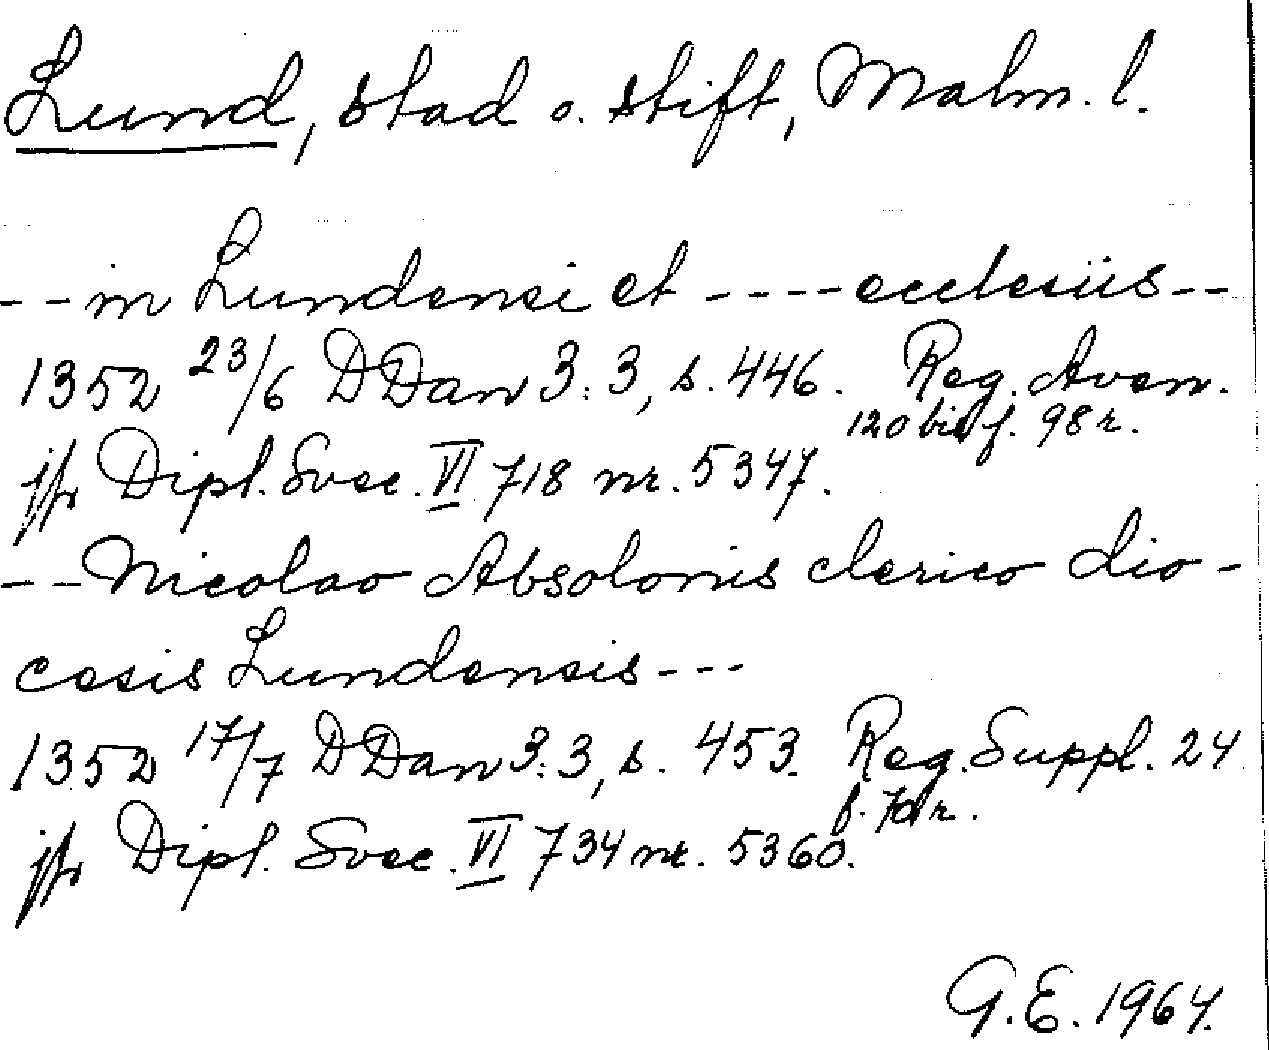 Lund, stad o. stift, Malm. l.
--in Lundensi et ----ecclesiis--
1352 23/6 DDan 3:3, s. 446. Reg. Aven.
120 bis f. 98 r.
jfr Dipl. Svec. VI 718 nr. 5347.
--Nicolao Absolonis clerico dio-
cesis Lundensis---
1352 17/7 DDan 3:3, s. 453. Reg. Suppl. 24
f. r.
jfr Dipl. Svec. VI 734 nr. 5360.
G.E. 1964.